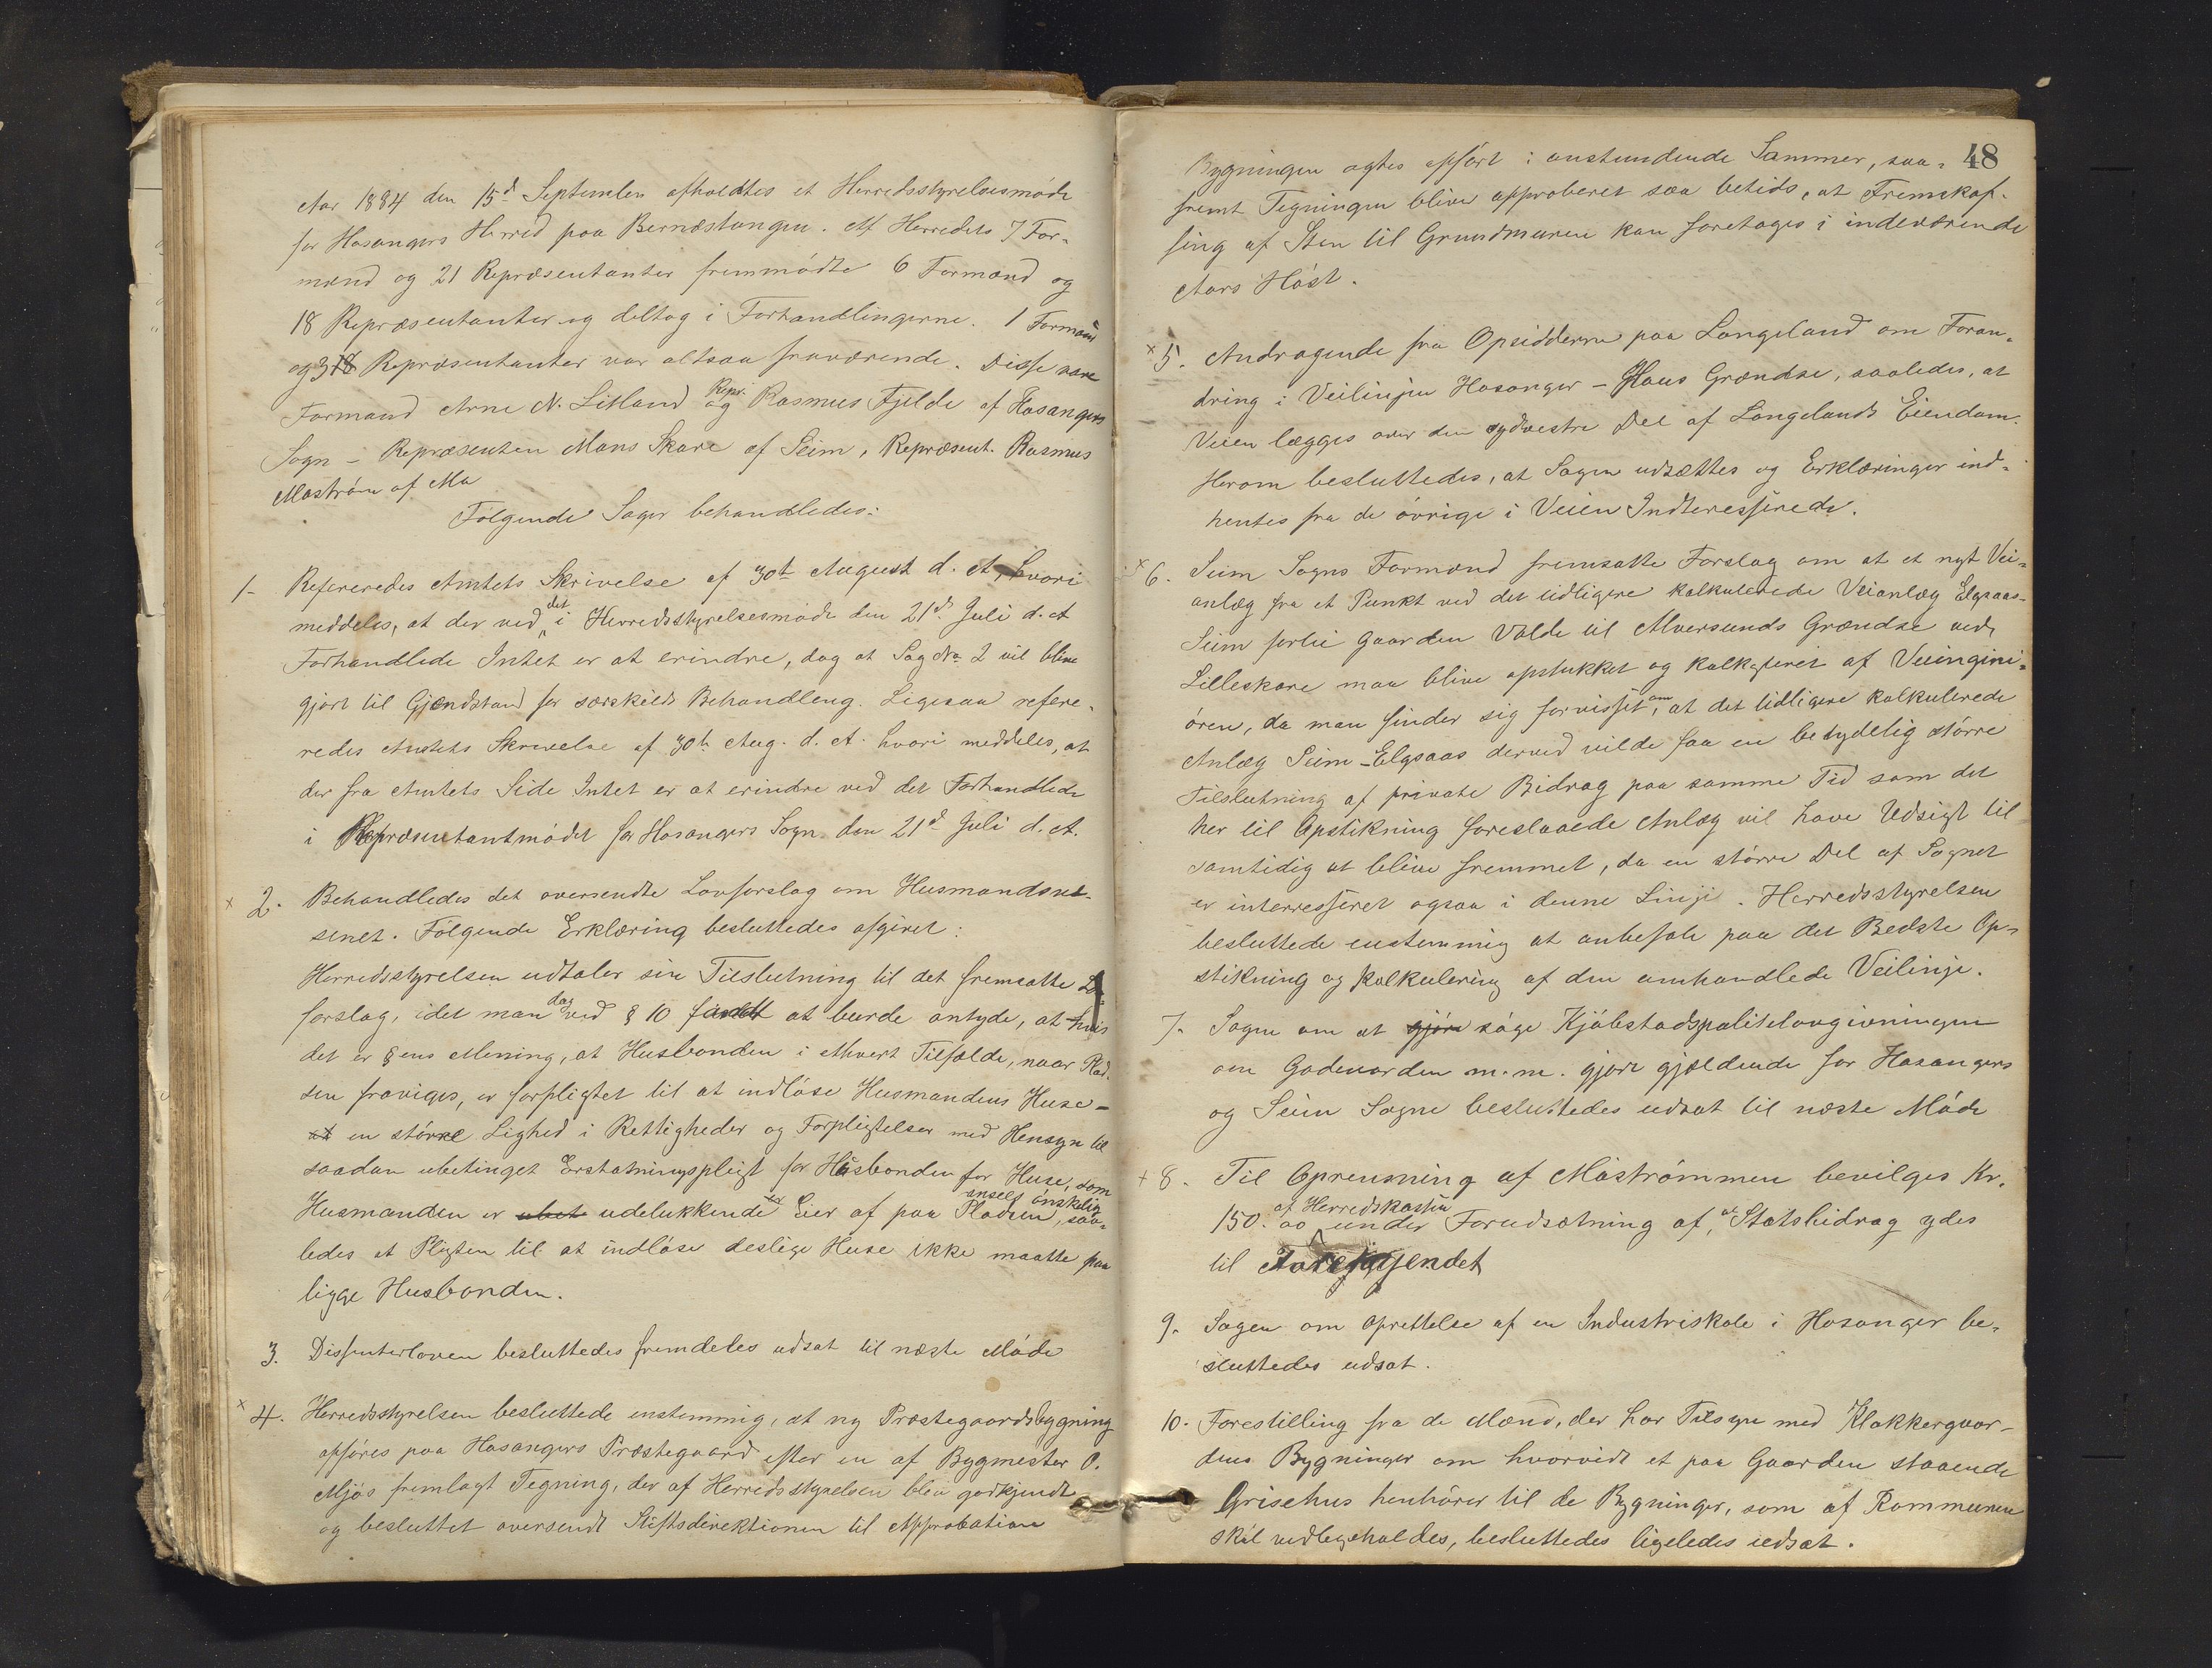 Aar 1884 den 15d September afholdtes et Herredsstyrelsesmøde
for Hosangers Herred paa Bernæstangen. Af Herredets 7 For-
mænd og 21 Repræsentanter fremmødte 6 Formænd og
18 Repræsentanter og deltog i Forhandlingerne. 1 Formand
og 3 18 Repræsentanter var altsaa fraværende. Disse vare
Formand Arne N. Litland og Repr. Rasmus Fjelde af Hosangers
Sogn – Repræsenten Mons Skare af Seim, Repræsent. Rasmus
Mostrøm af Mo
Følgende Sager behandledes:
1- Refereredes Amtets Skrivelse af 30th August d. A. hvori
meddeles, at der ved det i Herredsstyrelsesmøde den 21d Juli d. A
Forhandlede Intet er at erindre, dog at Sag No 2 vil blive
gjort til Gjændstand for særskildt Behandleng. Ligesaa refere-
redes Amtets Skrivelse af 30th Aug. d. A. hvori meddeles, at
der fra Amtets Side Intet er at erindre ved det Forhandlede
i Repræsentantmødet for Hosangers Sogn den 21d Juli d. A.
x 2. Behandledes det oversendte Lovforslag om Husmandsvæ-
senet. Følgende Erklæring besluttedes afgivet:
Herredsstyrelsen udtaler sin Tilslutning til det fremsatte Lov-
forslag, idet man dog ved § 10 fandt at burde antyde, at hvis
det er §ens Mening, at Husbonden i ethvert Tilfælde, naar Plad-
sen fraviges, er forpligtet til at indløse Husmandens Huse –
at en større Lighed i Rettigheder og Forpligtelser med Hensyn til
saadan ubetinget Erstatningspligt for Husbonden for Huse, som
Husmanden er ubet udelukkende Eier af paa Pladsen, ansees ønskelig, saa-
ledes at Pligten til at indløse deslige Huse ikke maatte paa
ligge Husbonden.
3. Dissenterloven besluttedes fremdeles udsat til næste Møde
x 4. Herredsstyrelsen besluttede enstemmig, at ny Præstegaardsbygning
opføres paa Hosangers Præstegaard efter en af Bygmester O.
Mjøs fremlagt Tegning, der af Herredsstyrelsen blev godkjendt
og besluttet oversendt Stiftsdirektionen til Approbation
48
Bygningen agtes opført i anstundende Sommer, saa-
fremt Tegningen bliver approberet saa betids, at Fremskaf-
fing af Sten til Grundmuren kan foretages i indeværende
Aars Høst.
x 5. Andragende fra Opsidderne paa Langeland om Foran-
dring i Veilinjen Hosanger – Haus Grændse, saaledes, at
Veien lægges over den sydvestre Del af Langelands Eiendom.
Herom besluttedes, at Sagen udsættes og Erklæringer ind-
hentes fra de øvrige i Veien Indteresserede.
x 6. Seim Sogns Formænd fremsatte Forslag om at et nyt Vei-
anlæg fra et Punkt ved det tidligere kalkulerede Veianlæg Elgsaas-
Seim forbi Gaarden Valde til Alversunds Grændse ved
Lilleskare maa blive opstukket og kalkuleret af Veiingini-
øren, da man finder sig forvisset om, at det tidligere kalkulerede
Anlæg Seim–Elgsaas derved vilde faa en betydelig større
Tilslutning af private Bidrag paa samme Tid som det
her til Opstikning foreslaaede Anlæg vil have Udsigt til
samtidig at blive fremmet, da en større Del af Sognet
er interresseret ogsaa i denne Linje. Herredsstyrelsen
besluttede enstemmig at anbefale paa det Bedste Op-
stikning og Kalkulering af den omhandlede Veilinje.
7. Sagen om at gjøre søge Kjøbstadspolitilovgivningen
om Godeuorden m. m. gjort gjældende for Hosangers
og Seim Sogne besluttedes udsat til næste Møde
+ 8. Til Oprensning af Mostrømmen bevilges Kr.
150.00 af Herredskassen under Forudsætning af, at Statsbidrag ydes
til Foretagendet
9. Sagen om Oprettelse af en Industriskole i Hosanger be-
sluttedes udsat.
10. Forestilling fra de Mænd, der har Tilsyn med Klokkergaar-
dens Bygninger om hvorvidt et paa Gaarden staaende
Grisehus henhører til de Bygninger, som af Kommunen
skal vedligeholdes, besluttedes ligeledes udsat.